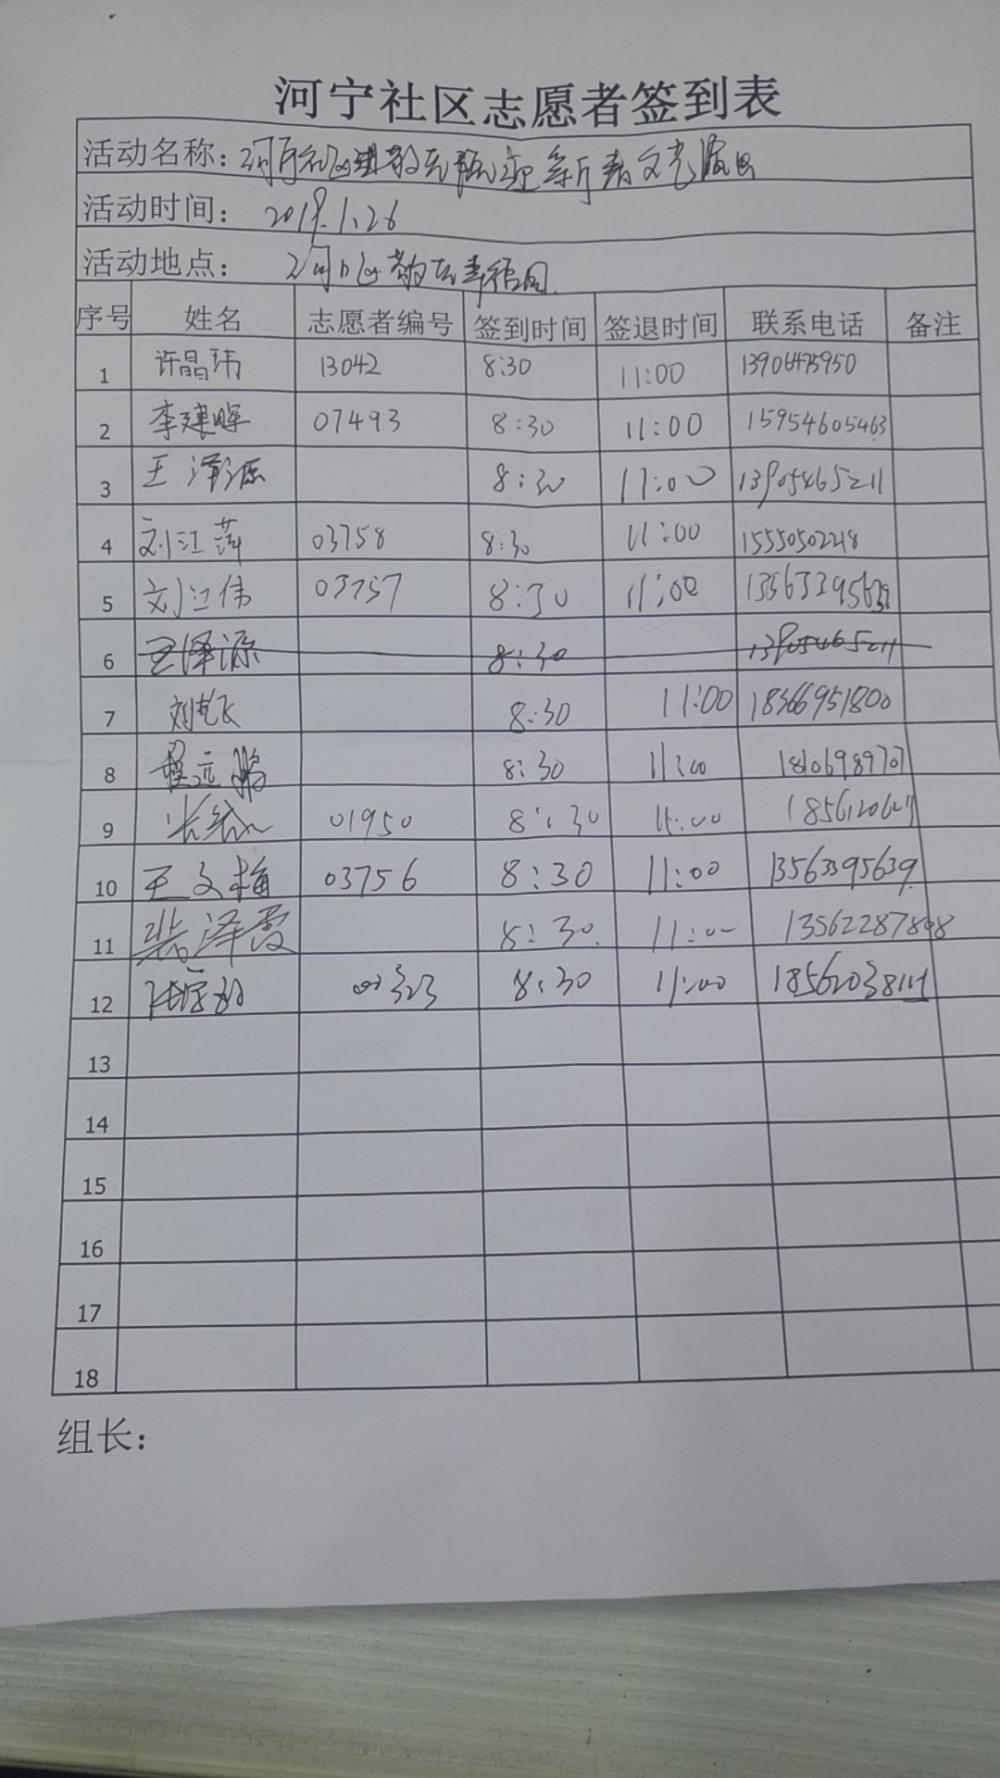 河宁社区志愿者签到表
活动名称：迎新春文艺演出
活动时间：2019.1.26
活动地点：幸福园
序号 姓名 志愿者编号 签到时间 签退时间 联系电话 备注
1 许晶玮 13042 8:30 11:00 13906475950
2 李建晖 07493 8:30 11:00 15954605463
3 王泽源 8:30 11:00 13905465211
4 刘江萍 03758 8:30 11:00
5 刘江伟 03757 8:30 11:00
6 王泽源 8:30 13905465211
7 刘艺飞 8:30 11:00 18366951800
8 程远鹏 8:30 11:00
9 01950 8:30 11:00
10 王文梅 03756 8:30 11:00 13563395639
11 裴泽霞 8:30 11:00
12 8:30 11:00
13
14
15
16
17
18
组长：